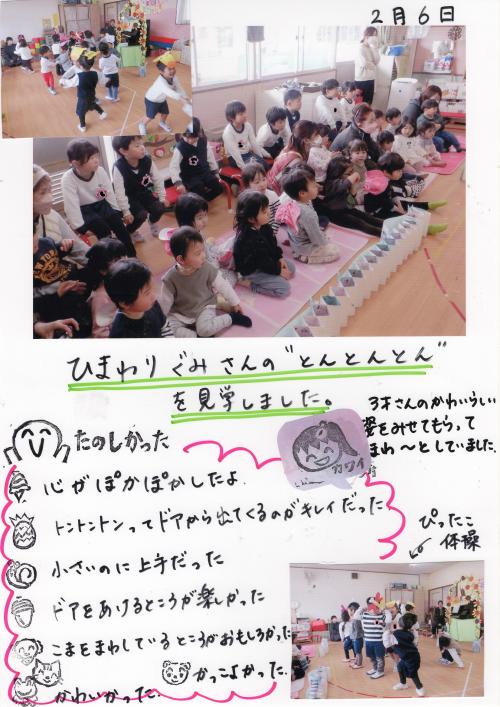 2月6日
ひまわりぐみさんの"とんとんとん"
を見学しました。
3才さんのかわいらしい
姿をみせてもらって
まわ〜としていました。
たのしかった
カワイイ
心がぽかぽかしたよ.
トントントンってドアから出てくるのがキレイだった
小さいのに上手だった
ドアをあけるところが楽しかった
こまをまわしているところがおもしろかった
かっこよかった.
かわいかった.
ぴったこ
体操